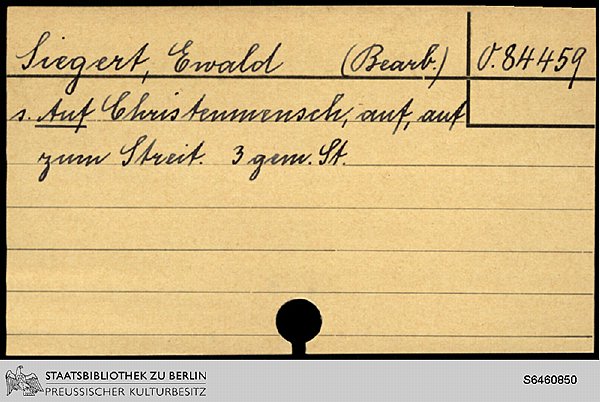 Siegert, Ewald (Bearb.) O. 84459
s. Auf Christenmensch, auf, auf
zum Streit. 3 gem. St.
STAATSBIBLIOTHEK ZU BERLIN
PREUSSISCHER KULTURBESITZ
S6460850